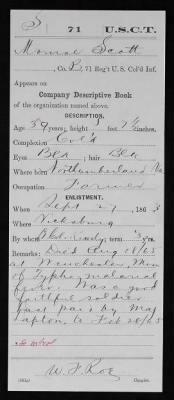 S | 71 | U.S.C.T.
Monroe Scott
, Co. B, 71 Reg't U. S. Col'd Inf.
Appears on
Company Descriptive Book
of the organization named above.
DESCRIPTION.
Age 39 years; height 5 feet 7½ inches.
Complexion Col'd
Eyes Blk ; hair Blk
Where born Northumberland Va
Occupation Farmer
ENLISTMENT.
When Sept 27, 1863
Where Vicksburg
By whom ; term 3 y'rs.
Remarks: Died Aug 18/65
at Winchester, Miss
of Typho malarial
fever. Was a good
faithful soldier
Last paid by Maj
to Feb 28/65
W. F. Roe
Copyist.